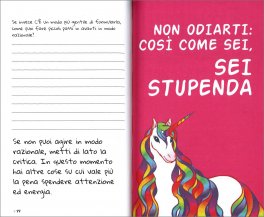 Se invece C'È un modo più gentile di formularlo,
come puoi fare piccoli passi in avanti in modo
razionale?
Se non puoi agire in modo
razionale, metti di lato la
critica. In questo momento
hai altre cose su cui vale più
la pena spendere attenzione
ed energia.
NON ODIARTI:
COSÌ COME SEI,
SEI
STUPENDA